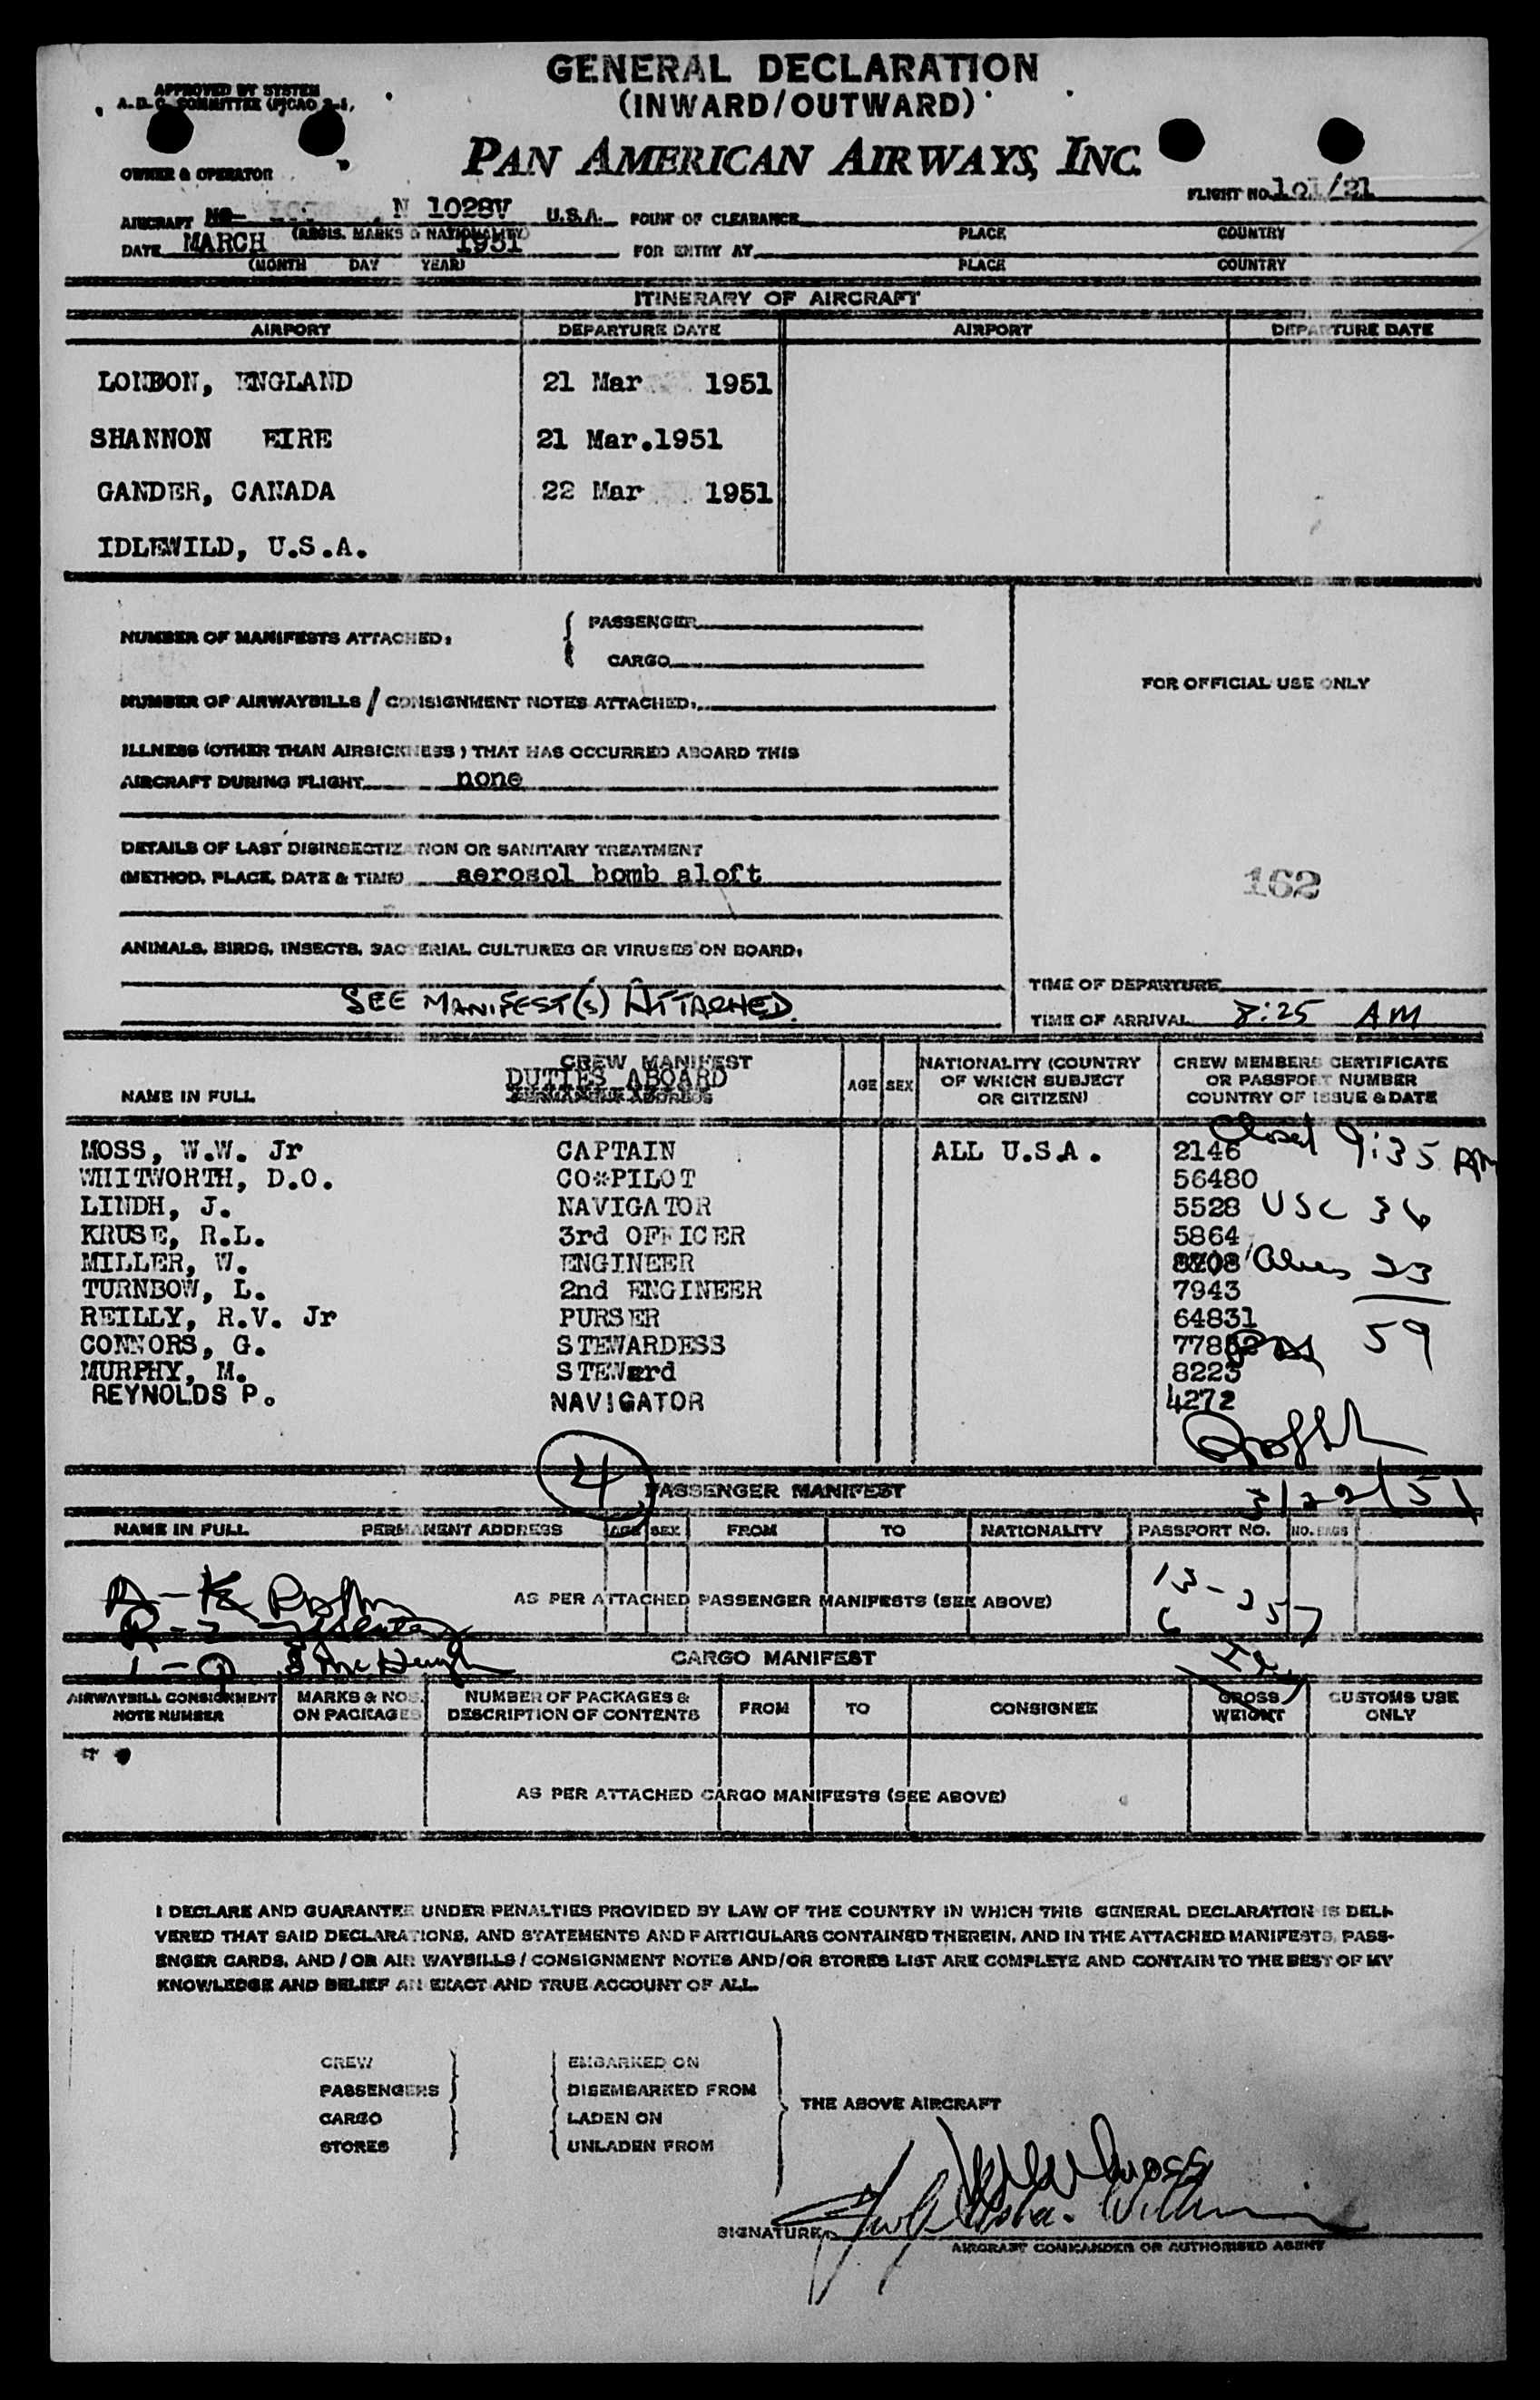 GENERAL DECLARATION
(INWARD/OUTWARD)
APPROVED BY SYSTEM
A.D.C. COMMITTEE (PICAO 2-1,
PAN AMERICAN AIRWAYS, INC.
OWNER & OPERATOR
FLIGHT NO. 101/21
AIRCRAFT NO N 1028V U.S.A. POINT OF CLEARANCE
(REGIS. MARKS & NATIONALITY) PLACE COUNTRY
DATE MARCH 1951 FOR ENTRY AT
(MONTH DAY YEAR) PLACE COUNTRY
ITINERARY OF AIRCRAFT
AIRPORT DEPARTURE DATE AIRPORT DEPARTURE DATE
LONDON, ENGLAND 21 Mar 1951
SHANNON EIRE 21 Mar.1951
GANDER, CANADA 22 Mar 1951
IDLEWILD, U.S.A.
NUMBER OF MANIFESTS ATTACHED: PASSENGER
CARGO
FOR OFFICIAL USE ONLY
NUMBER OF AIRWAYBILLS / CONSIGNMENT NOTES ATTACHED:
ILLNESS (OTHER THAN AIRSICKNESS) THAT HAS OCCURRED ABOARD THIS
AIRCRAFT DURING FLIGHT none
DETAILS OF LAST DISINSECTIZATION OR SANITARY TREATMENT
(METHOD, PLACE, DATE & TIME) aerosol bomb aloft
162
ANIMALS, BIRDS, INSECTS, BACTERIAL CULTURES OR VIRUSES ON BOARD:
TIME OF DEPARTURE
SEE MANIFEST(S) ATTACHED.
TIME OF ARRIVAL 8:25 AM
CREW MANIFEST
DUTIES ABOARD
NAME IN FULL PERMANENT ADDRESS AGE SEX NATIONALITY (COUNTRY OF WHICH SUBJECT OR CITIZEN) CREW MEMBERS CERTIFICATE OR PASSPORT NUMBER COUNTRY OF ISSUE & DATE
Closed 9:35 AM
MOSS, W.W. Jr CAPTAIN ALL U.S.A. 2146
WHITWORTH, D.O. CO*PILOT 56480
LINDH, J. NAVIGATOR 5528 USC 36
KRUSE, R.L. 3rd OFFICER 5864
MILLER, W. ENGINEER 8208 Aliens 23
TURNBOW, L. 2nd ENGINEER 7943
REILLY, R.V. Jr PURSER 64831
CONNORS, G. STEWARDESS 59
MURPHY, M. STEWard 8225
REYNOLDS P. NAVIGATOR 4272
4
PASSENGER MANIFEST
3/22/51
NAME IN FULL PERMANENT ADDRESS AGE SEX FROM TO NATIONALITY PASSPORT NO. NO. BAGS
A-K
AS PER ATTACHED PASSENGER MANIFESTS (SEE ABOVE)
13-257
6
CARGO MANIFEST
AIRWAYBILL CONSIGNMENT NOTE NUMBER MARKS & NOS. ON PACKAGES NUMBER OF PACKAGES & DESCRIPTION OF CONTENTS FROM TO CONSIGNEE GROSS WEIGHT CUSTOMS USE ONLY
AS PER ATTACHED CARGO MANIFESTS (SEE ABOVE)
I DECLARE AND GUARANTEE UNDER PENALTIES PROVIDED BY LAW OF THE COUNTRY IN WHICH THIS GENERAL DECLARATION IS DELI-
VERED THAT SAID DECLARATIONS, AND STATEMENTS AND PARTICULARS CONTAINED THEREIN, AND IN THE ATTACHED MANIFESTS, PASS-
ENGER CARDS, AND / OR AIR WAYBILLS / CONSIGNMENT NOTES AND/OR STORES LIST ARE COMPLETE AND CONTAIN TO THE BEST OF MY
KNOWLEDGE AND BELIEF AN EXACT AND TRUE ACCOUNT OF ALL.
CREW EMBARKED ON
PASSENGERS DISEMBARKED FROM
THE ABOVE AIRCRAFT
CARGO LADEN ON
STORES UNLADEN FROM
SIGNATURE
AIRCRAFT COMMANDER OR AUTHORISED AGENT